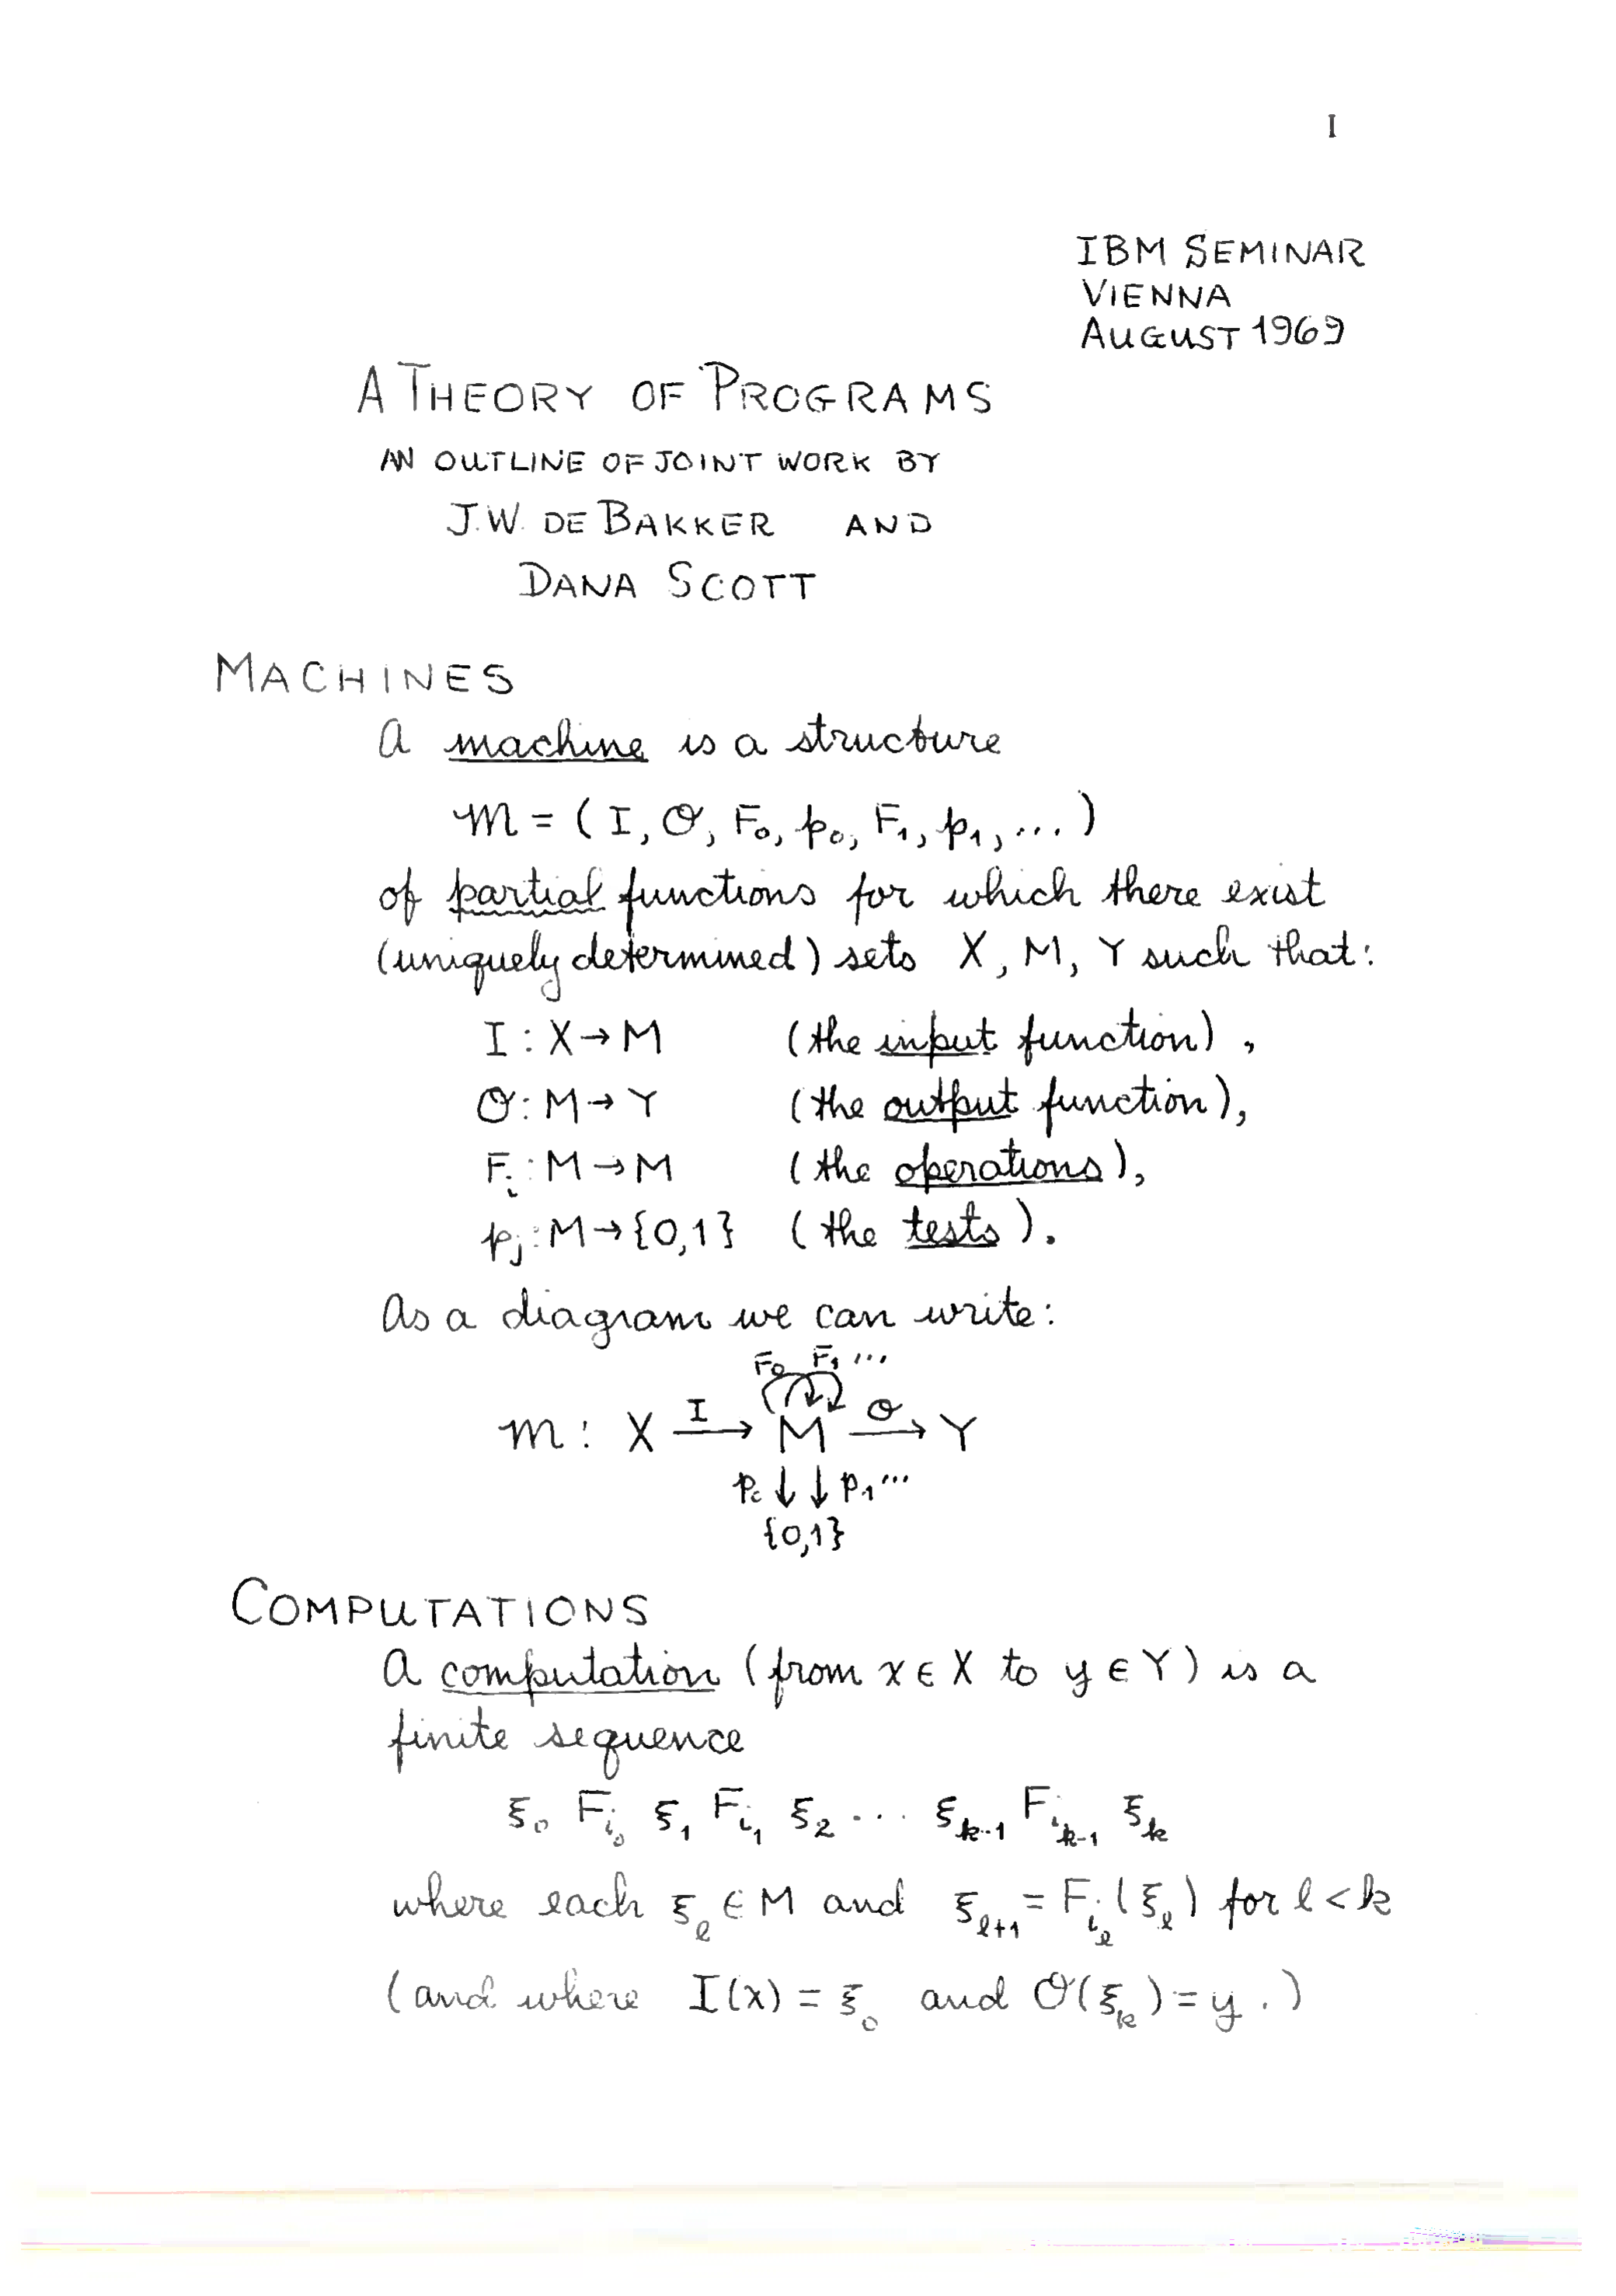 I
IBM SEMINAR
VIENNA
AUGUST 1969
A THEORY OF PROGRAMS
AN OUTLINE OF JOINT WORK BY
J.W. DE BAKKER AND
DANA SCOTT
MACHINES
A machine is a structure
𝓜 = ( I, O, F₀, p₀, F₁, p₁, ... )
of partial functions for which there exist
(uniquely determined) sets X, M, Y such that:
I : X → M (the input function),
O : M → Y (the output function),
Fᵢ : M → M (the operations),
pⱼ : M → {0,1} (the tests).
As a diagram we can write:
F₀ F₁ ...
𝓜 : X I→ M O→ Y
p₀ ↓ ↓ p₁ ...
{0,1}
COMPUTATIONS
A computation (from x ∈ X to y ∈ Y) is a
finite sequence
ξ₀ F_{i₀} ξ₁ F_{i₁} ξ₂ ... ξ_{k-1} F_{i_{k-1}} ξ_k
where each ξ_ℓ ∈ M and ξ_{ℓ+1} = F_{i_ℓ}(ξ_ℓ) for ℓ < k
(and where I(x) = ξ₀ and O(ξ_k) = y.)